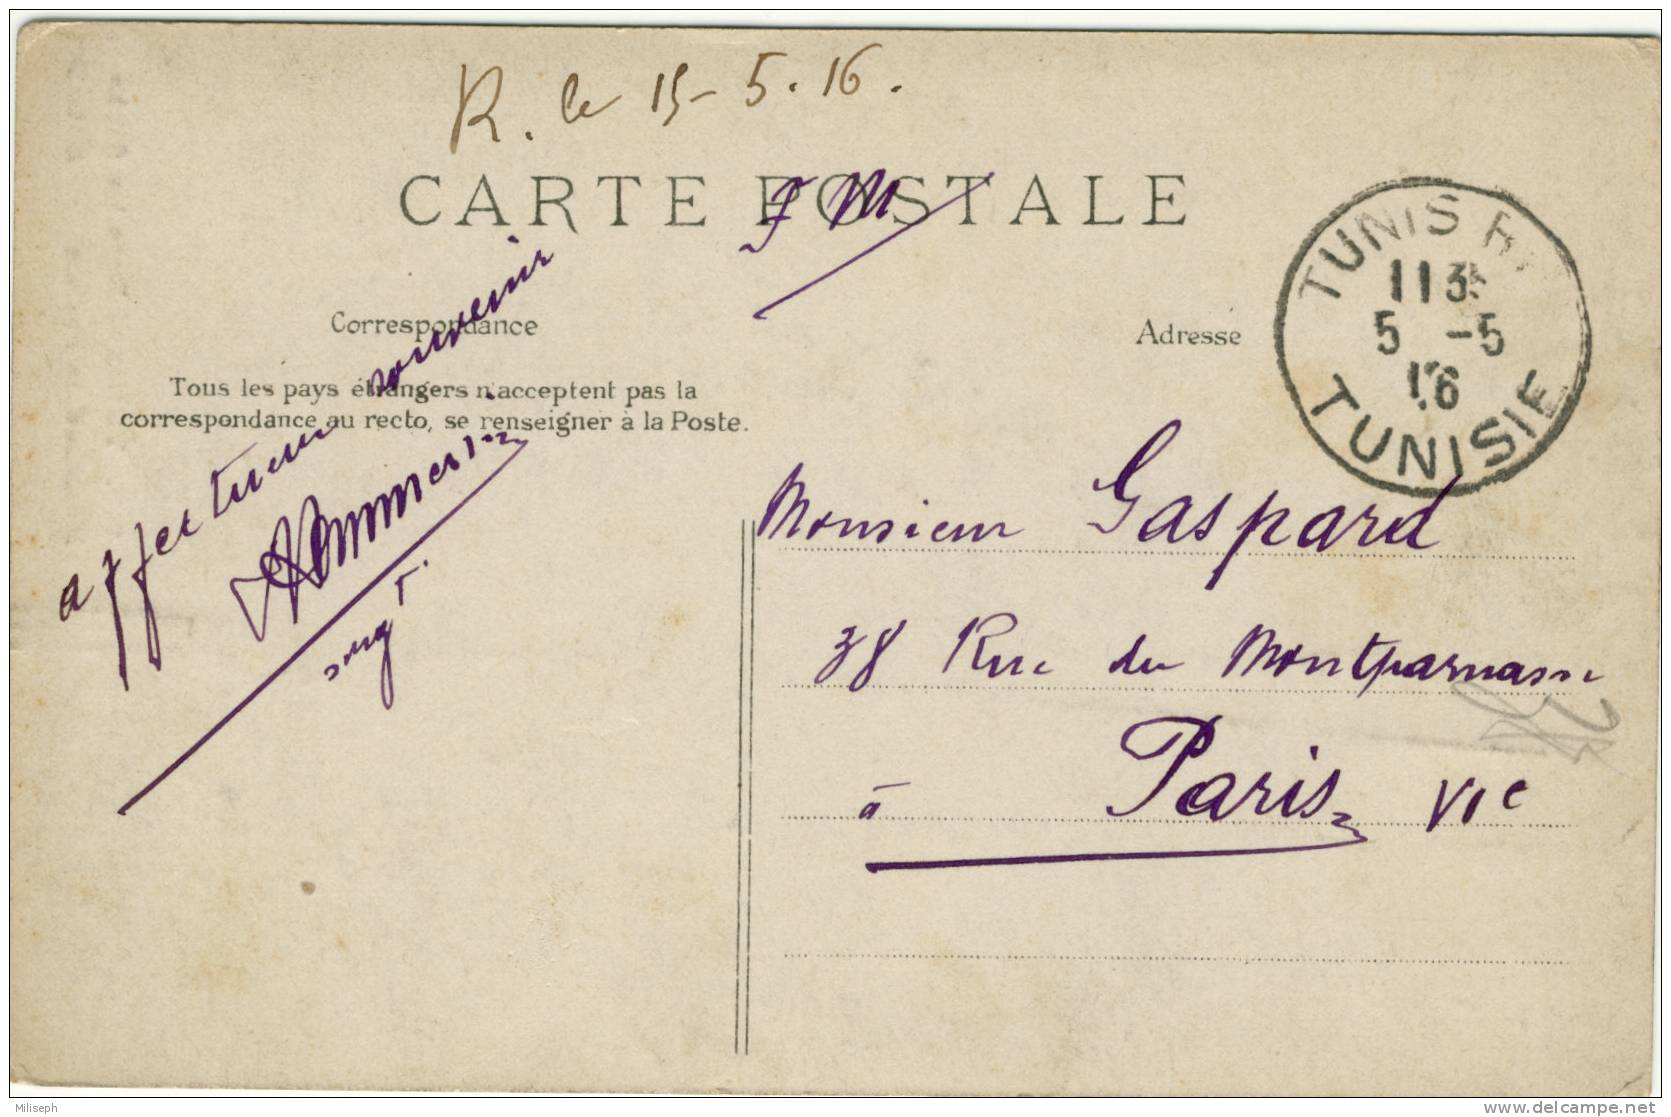 R. le 15-5.16.
CARTE POSTALE
F M
Correspondance
Adresse
Tous les pays étrangers n'acceptent pas la
correspondance au recto, se renseigner à la Poste.
TUNIS R
11 35
5 -5
16
TUNISIE
affectueux souvenir
sergt
Monsieur Gaspard
38 Rue du Montparnasse
à Paris VIe
Miliseph
www.delcampe.net